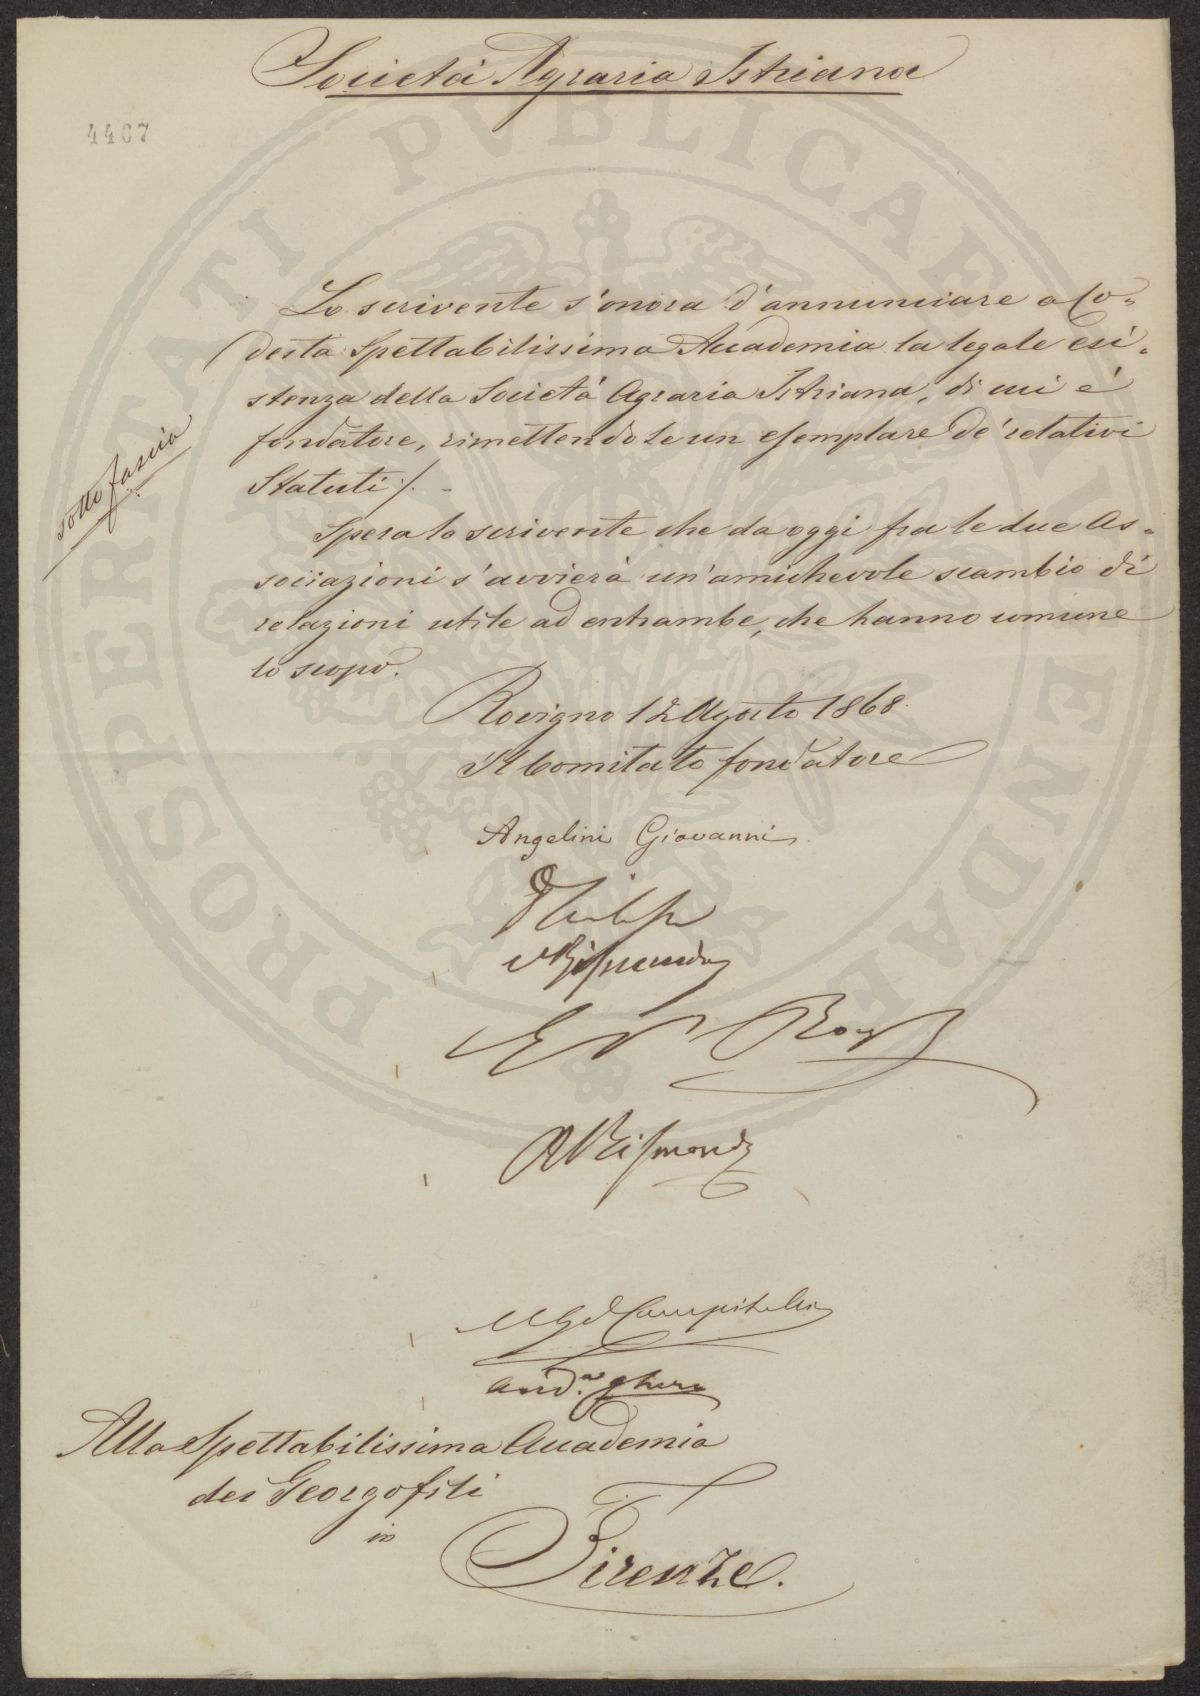 Società Agraria Istriana
4467
Lo scrivente s'onora d'annunciare a Co-
desta Spettabilissima Accademia la legale esi-
stenza della Società Agraria Istriana, di cui é
fondatore, rimettendole un esemplare de' relativi
Statuti ·/. -
sotto fascia
Spera lo scrivente che da oggi fra le due As-
sociazioni s'avvierà un'amichevole scambio di
relazioni utile ad entrambe, che hanno comune
lo scopo.
Rovigno 12 Agosto 1868
Il Comitato fondatore
Angelini Giovanni
Rismondo
A Rismondo
Campitelli
And.ᵃ Ghira
Alla Spettabilissima Accademia
dei Georgofili
in
Firenze.
PROSPERITATI PVBLICAE AVGENDAE